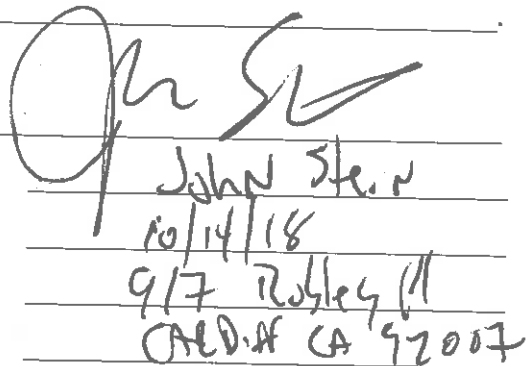 John Stein
10/14/18
917 Rubley Pl
CARDIff CA 92007